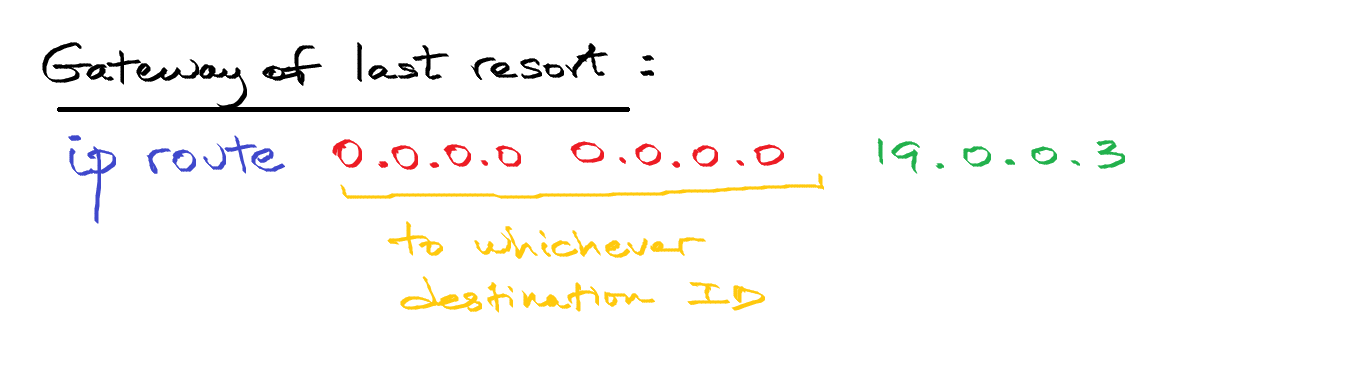 Gateway of last resort :
ip route 0.0.0.0 0.0.0.0 19.0.0.3
to whichever
destination ID